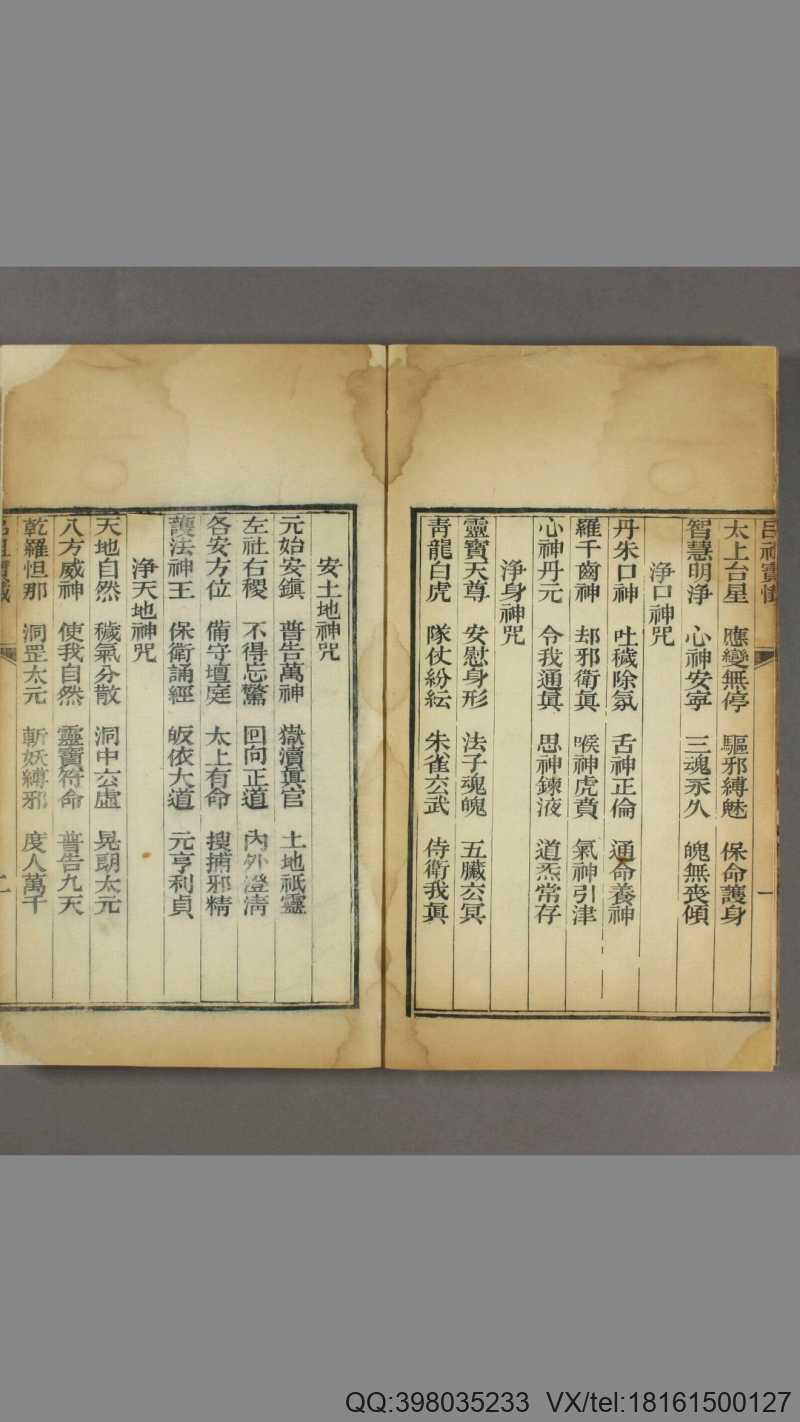 太上台星　應變無停　驅邪縛魅　保命護身
智慧明淨　心神安寧　三魂永久　魄無喪傾
淨口神咒
丹朱口神　吐穢除氛　舌神正倫　通命養神
羅千齒神　却邪衛眞　喉神虎賁　氣神引津
心神丹元　令我通眞　思神鍊液　道炁常存
淨身神咒
靈寶天尊　安慰身形　法子魂魄　五臟玄冥
靑龍白虎　隊仗紛紜　朱雀玄武　侍衛我眞
一
安土地神咒
元始安鎭　普告萬神　嶽瀆眞官　土地祇靈
左社右稷　不得忘驚　回向正道　內外澄淸
各安方位　備守壇庭　太上有命　搜捕邪精
護法神王　保衛誦經　皈依大道　元亨利貞
淨天地神咒
天地自然　穢氣分散　洞中玄虛　晃朗太元
八方威神　使我自然　靈寶符命　普告九天
乾羅怛那　洞罡太元　斬妖縛邪　度人萬千
QQ:398035233 VX/tel:18161500127